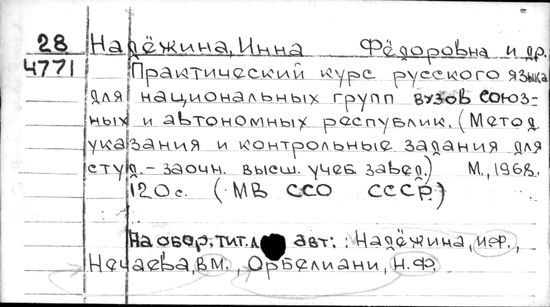 28 Надёжина, Инна Фёдоровна и др.
4771 Практический курс русского языка
для национальных групп вузов союз-
ных и автономных республик. (Метод.
указания и контрольные задания для
студ. - заочн. высш. учеб. завед.) М., 1968.
120 с. (МВ ССО СССР.)
На обор. тит. л авт.: Надёжина, И.Ф.,
Нечаева, В.М., Орбелиани, Н.Ф.